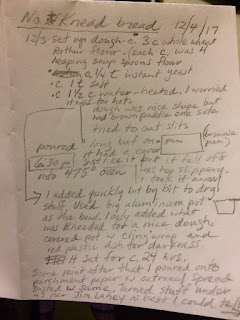 No Knead bread 12/4/17
12/3 Set up dough - c. 3c whole wheat
Arthur flour - (each c. was 4
heaping soup spoons flour
c. 1/4 t instant yeast
c. 1 t salt
c. 1 1/2 c water - heated. I worried
it was too hot.
dough was nice shape but
had brown puddle one side
tried to cut slits
poured long loaf on pan (brownie pan)
6:30 pm it had a cover
just like it but it fell off
into 475° oven
too slippery.
I took it away
I added quickly bit by bit to dry
stuff. Used big aluminum pot
as the bowl. I only added what
was needed for a nice dough.
covered pot w cling wrap and
red plastic dish for darkness.
It set for c. 24 hrs.
Some point after that I poured onto
parchment paper w oatmeal spread
dusted w same. Turned stuff under
Jim Lahey as best I could to